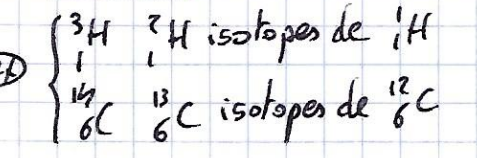 ³₁H ²₁H isotopes de ¹₁H
¹⁴₆C ¹³₆C isotopes de ¹²₆C